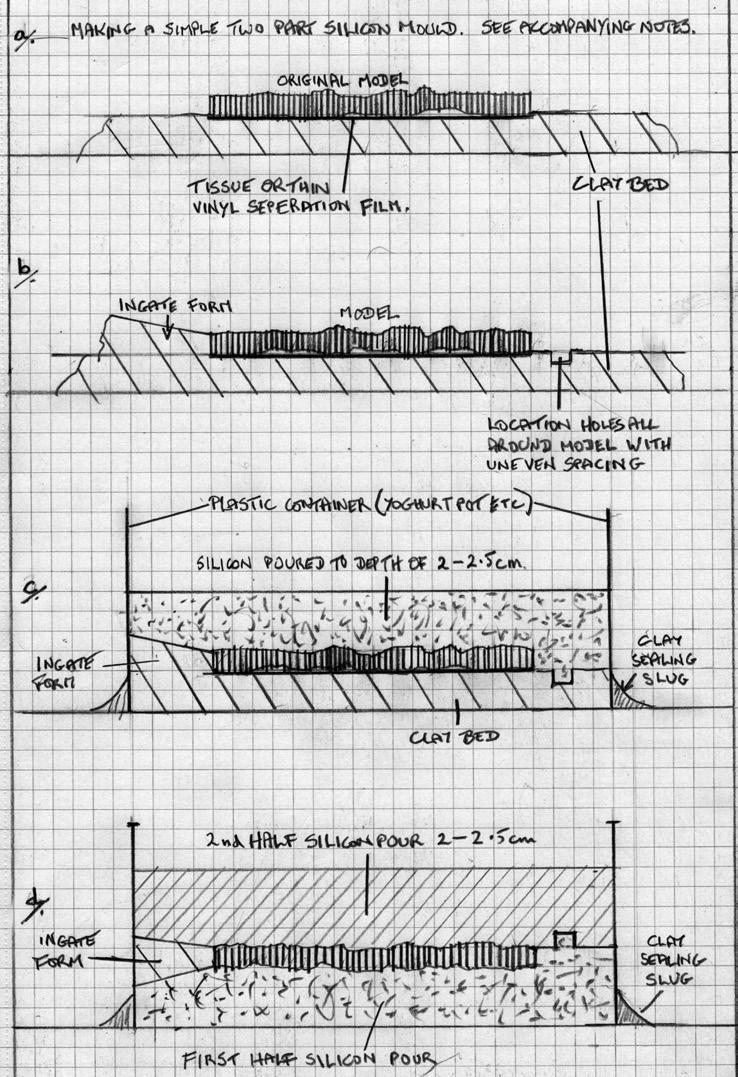 a/. MAKING A SIMPLE TWO PART SILICON MOULD. SEE ACCOMPANYING NOTES.
ORIGINAL MODEL
TISSUE OR THIN
VINYL SEPERATION FILM.
CLAY BED
b/.
INGATE FORM
MODEL
LOCATION HOLES ALL
AROUND MODEL WITH
UNEVEN SPACING
PLASTIC CONTAINER (YOGHURT POT ETC)
SILICON POURED TO DEPTH OF 2-2.5cm.
c/.
INGATE
FORM
CLAY
SEALING
SLUG
CLAY BED
2nd HALF SILICON POUR 2-2.5cm
d/.
INGATE
FORM
CLAY
SEALING
SLUG
FIRST HALF SILICON POUR